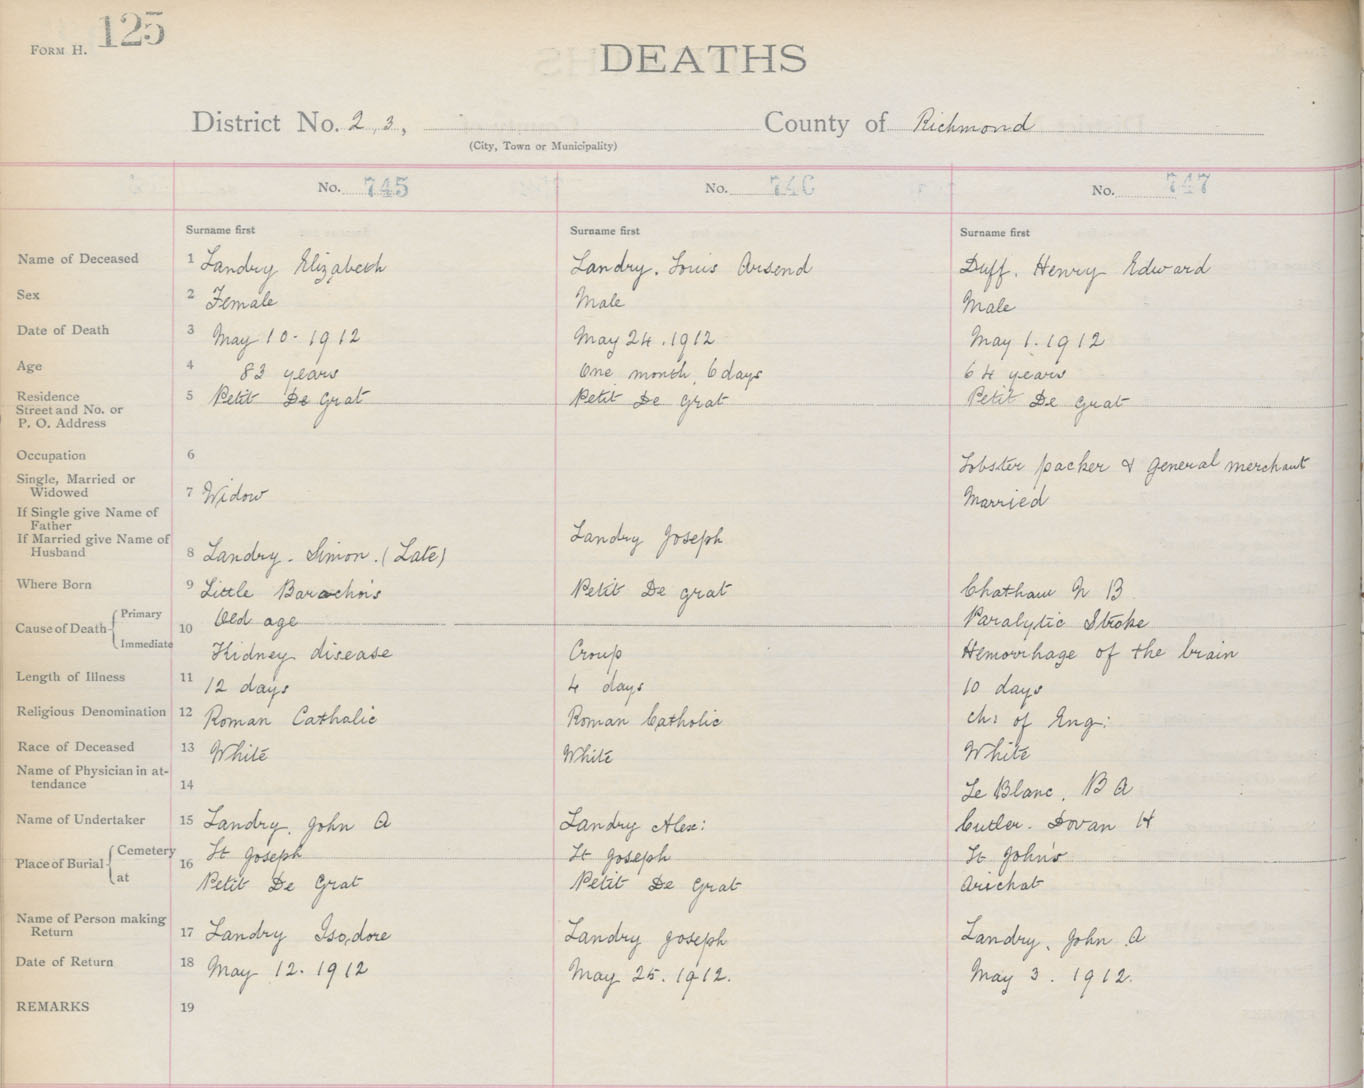 FORM H. 125
DEATHS
District No. 2 3, County of Richmond
(City, Town or Municipality)
No. 745 No. 746 No. 747
Surname first Surname first Surname first
Name of Deceased 1 Landry Elizabeth Landry. Louis Arsend Duff. Henry Edward
Sex 2 Female Male Male
Date of Death 3 May 10 - 1912 May 24 . 1912 May 1 . 1912
Age 4 83 years One month, 6 days 64 years
Residence Street and No. or P. O. Address 5 Petit De Grat Petit De Grat Petit De Grat
Occupation 6 Lobster packer & general merchant
Single, Married or Widowed 7 Widow Married
If Single give Name of Father
If Married give Name of Husband 8 Landry - Simon. (Late) Landry Joseph
Where Born 9 Little Barachois Petit De grat Chatham N B
Cause of Death Primary 10 Old age Paralytic Stroke
Immediate Kidney disease Croup Hemorrhage of the brain
Length of Illness 11 12 days 4 days 10 days
Religious Denomination 12 Roman Catholic Roman Catholic ch: of Eng:
Race of Deceased 13 White White White
Name of Physician in attendance 14 Le Blanc, B A
Name of Undertaker 15 Landry, John A Landry Alex: Cutler. Dovan H
Place of Burial Cemetery 16 St Joseph St Joseph St John's
at Petit De Grat Petit De Grat Arichat
Name of Person making Return 17 Landry Isodore Landry Joseph Landry, John A
Date of Return 18 May 12. 1912 May 25. 1912. May 3. 1912.
REMARKS 19